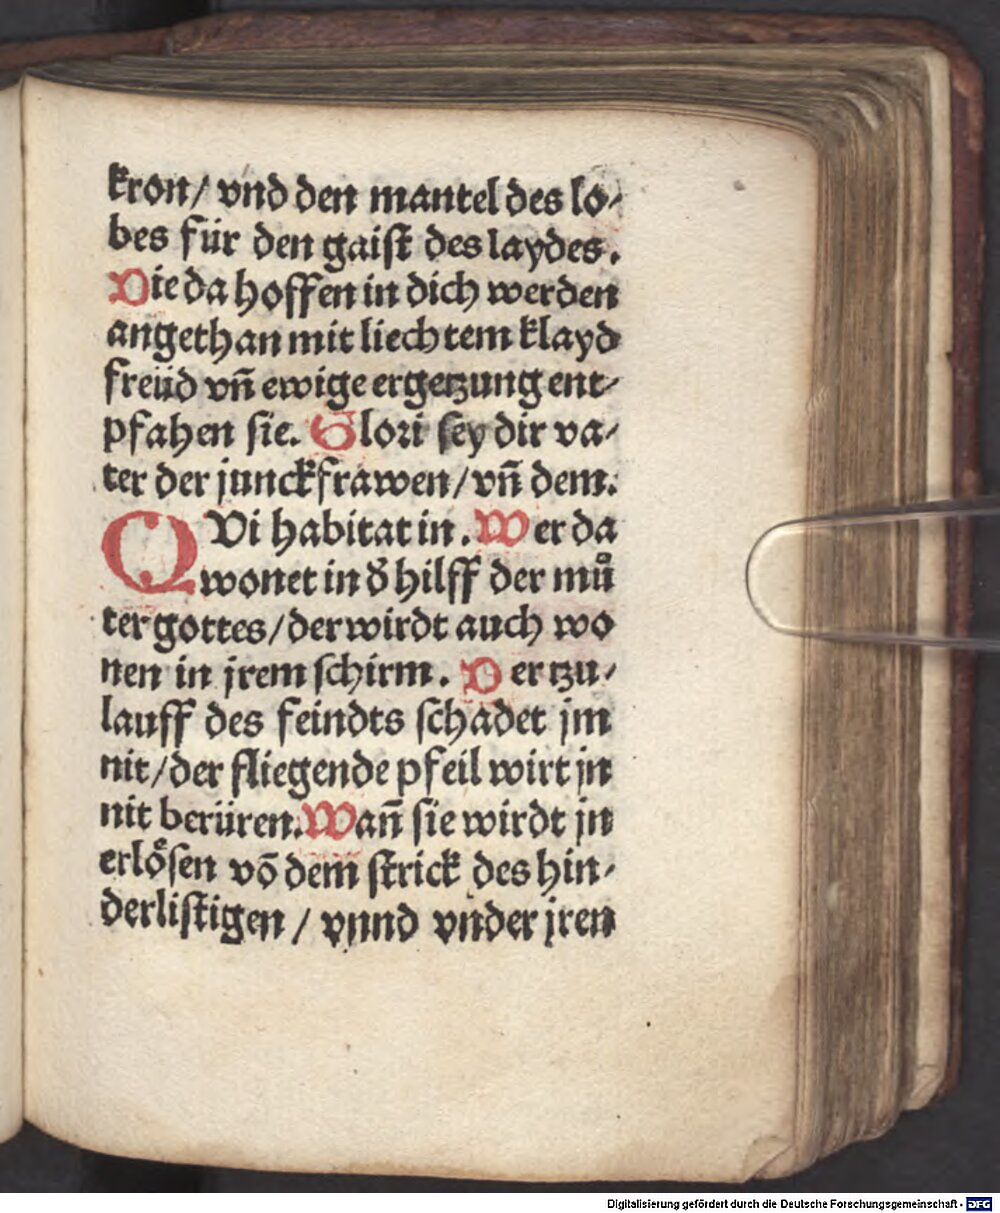 kron/ vnd den mantel des lo-
bes für den gaiſt des laydes.
Die da hoffen in dich werden
angethan mit liechtem klayd
freüd vn̄ ewige ergetzung ent-
pfahen ſie. Glori ſey dir va-
ter der junckfrawen/vn̄ dem.
QVi habitat in. Wer da
wonet in d̕ hilff der mů
ter gottes/der wirdt auch wo
nen in jrem ſchirm. Der tzu-
lauff des feindts ſchadet jm
nit/der fliegende pfeil wirt jn
nit berüren. Wan̄ ſie wirdt jn
erlöſen vō dem ſtrick des hin-
derliſtigen / vnnd vnder jren
Digitalisierung gefördert durch die Deutsche Forschungsgemeinschaft - DFG